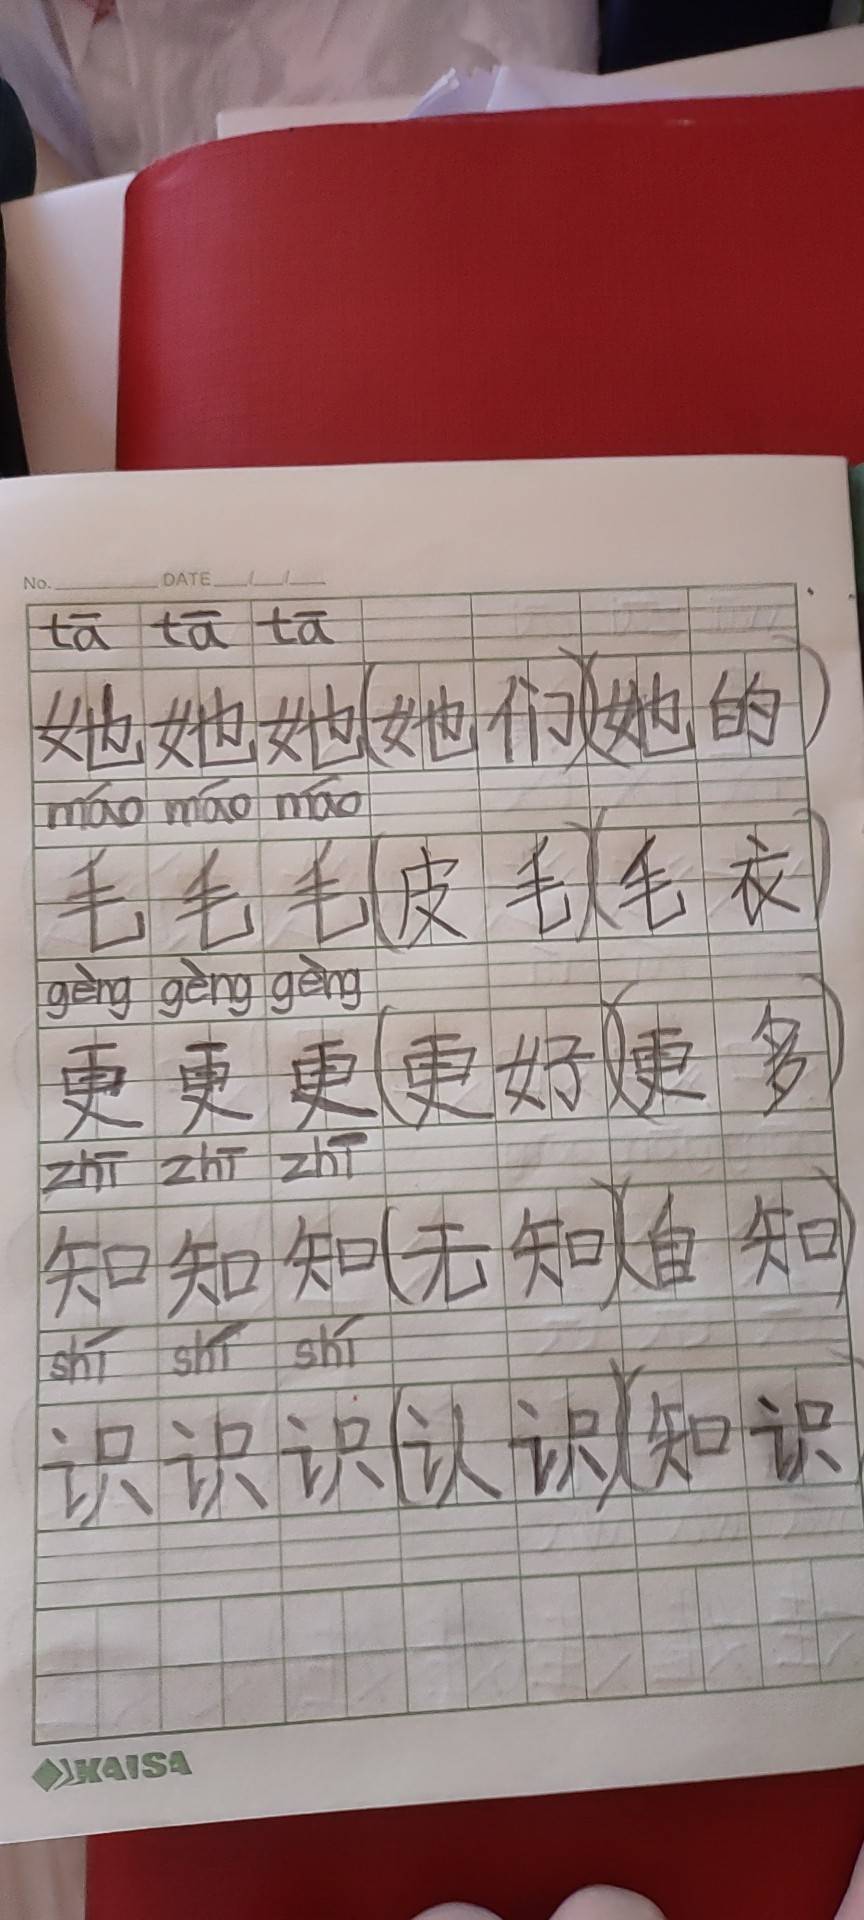 No. DATE / /
tā tā tā
她 她 她(她 们)(她 的)
máo máo máo
毛 毛 毛(皮 毛)(毛 衣)
gèng gèng gèng
更 更 更(更 好)(更 多)
zhī zhī zhī
知 知 知(无 知)(自 知)
shí shí shí
识 识 识(认 识)(知 识
KAISA